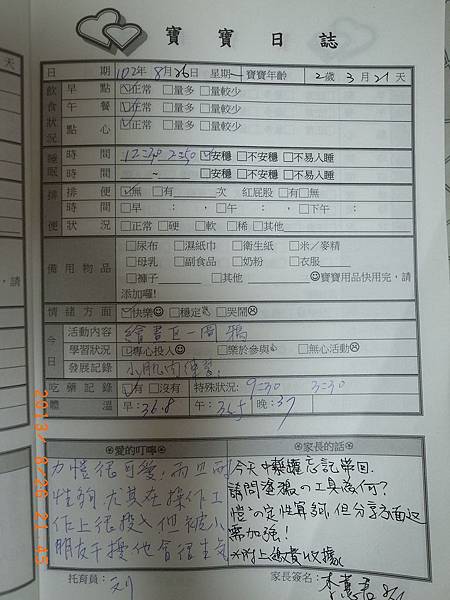 寶寶日誌
日期 102年 8月26日 星期一 寶寶年齡 2歲 3月 21天
飲食狀況
早點 ☑正常 □量多 □量較少
午餐 ☑正常 □量多 □量較少
點心 ☑正常 □量多 □量較少
睡眠
時間 12:30 2:50 ☑安穩 □不安穩 □不易入睡
時間 ~ □安穩 □不安穩 □不易入睡
排便
排便 ☑無 □有 次 紅屁股 □有□無
時間 □早 : ,□午 : ,□下午 :
狀況 □正常 □硬 □軟 □稀 □其他
備用物品
□尿布 □濕紙巾 □衛生紙 □米／麥精
□母乳 □副食品 □奶粉 □衣服
□褲子 □其他 ☺寶寶用品快用完,請
添加囉!
情緒方面 ☑快樂☺ □穩定 □哭鬧☹
今日
活動內容 繪畫區—圈鴉
學習狀況 ☑專心投入☺ □樂於參與 □無心活動☹
發展記錄 小肌肉練習
吃藥記錄 ☑有 □沒有 特殊狀況: 9:30 3:30
體溫 早:36.8 午:36.5 晚:37
愛的叮嚀
力愷很可愛,而且耐
性夠尤其在操作工
作上很投入他被小
朋友干擾他會很生氣
托育員:
家長的話
今天中餐讓忘記帶回.
請問塗鴉の工具為何?
愷の定性算夠,但分享方面還
要加強!
附上繳費收據
家長簽名:
2013/ 8/26 21:45
天
,請